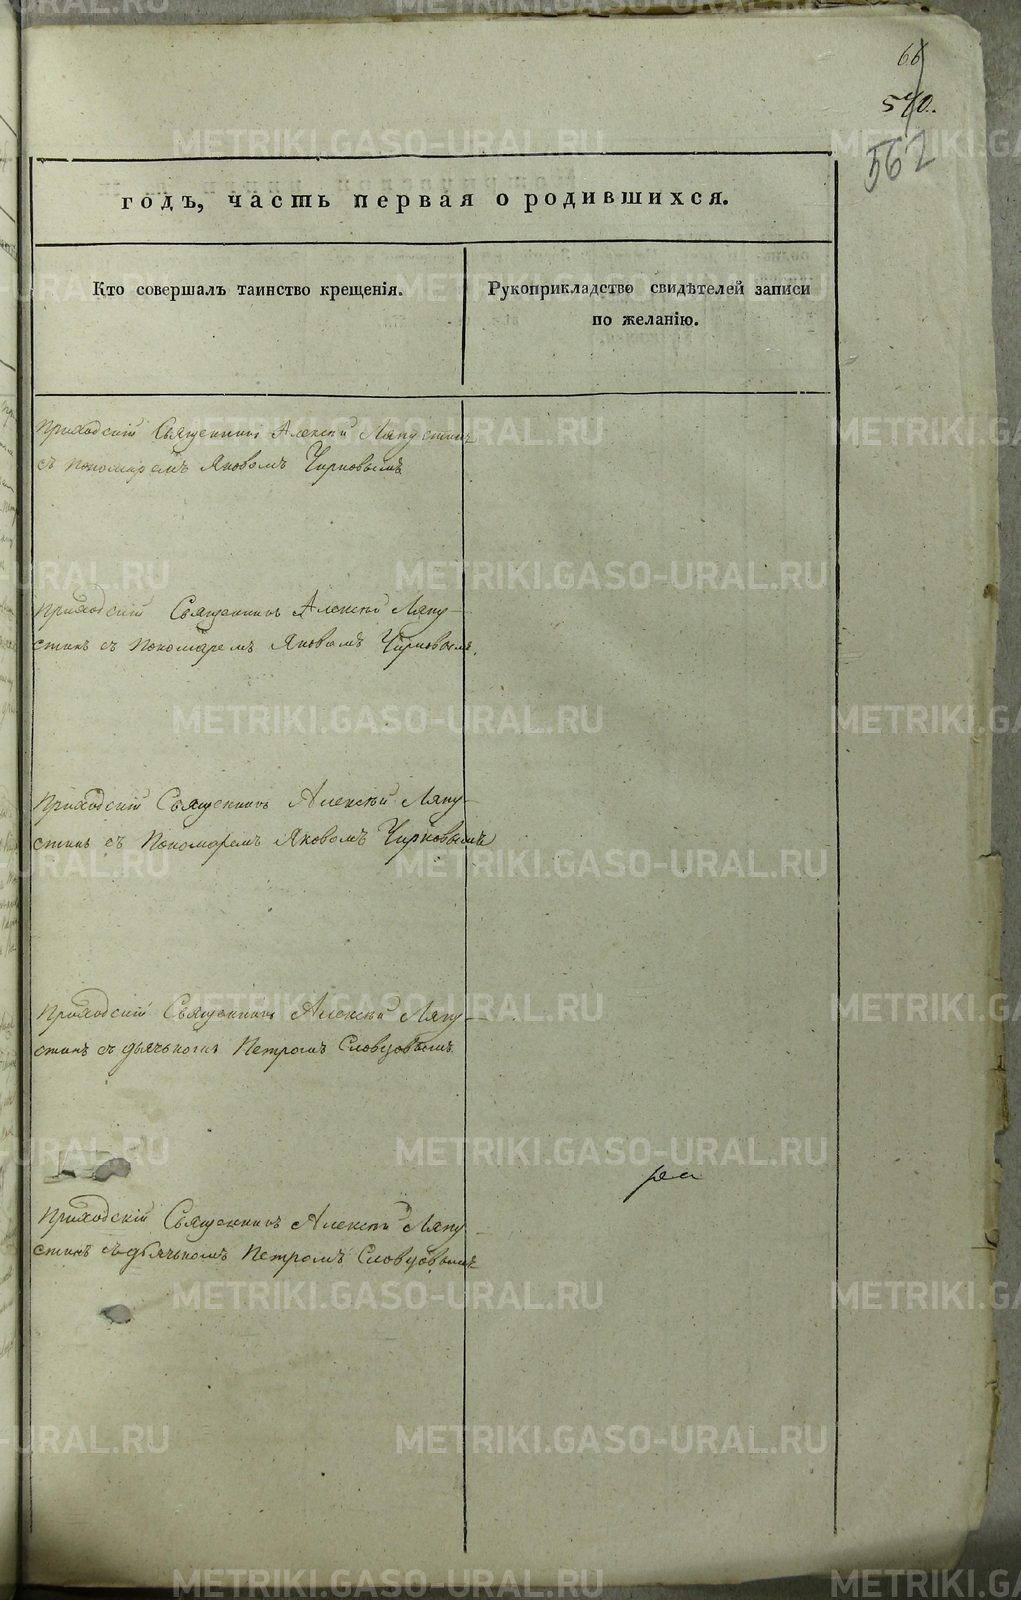 66
570.
562
годъ, часть первая о родившихся.
Кто совершалъ таинство крещенія.
Рукоприкладство свидѣтелей записи
по желанію.
Приходскій Священникъ Алексѣй Ляпустинъ
съ Пономаремъ Яковомъ Чирковымъ
Приходскій Священникъ Алексѣй Ляпу-
стинъ съ Пономаремъ Яковомъ Чирковымъ.
Приходскій Священникъ Алексѣй Ляпу-
стинъ съ Пономаремъ Яковомъ Чирковымъ
Приходскій Священникъ Алексѣй Ляпу-
стинъ съ дьячькомъ Петромъ Словцовымъ
Приходскій Священникъ Алексѣй Ляпу-
стинъ съ дьячькомъ Петромъ Словцовымъ
METRIKI.GASO-URAL.RU